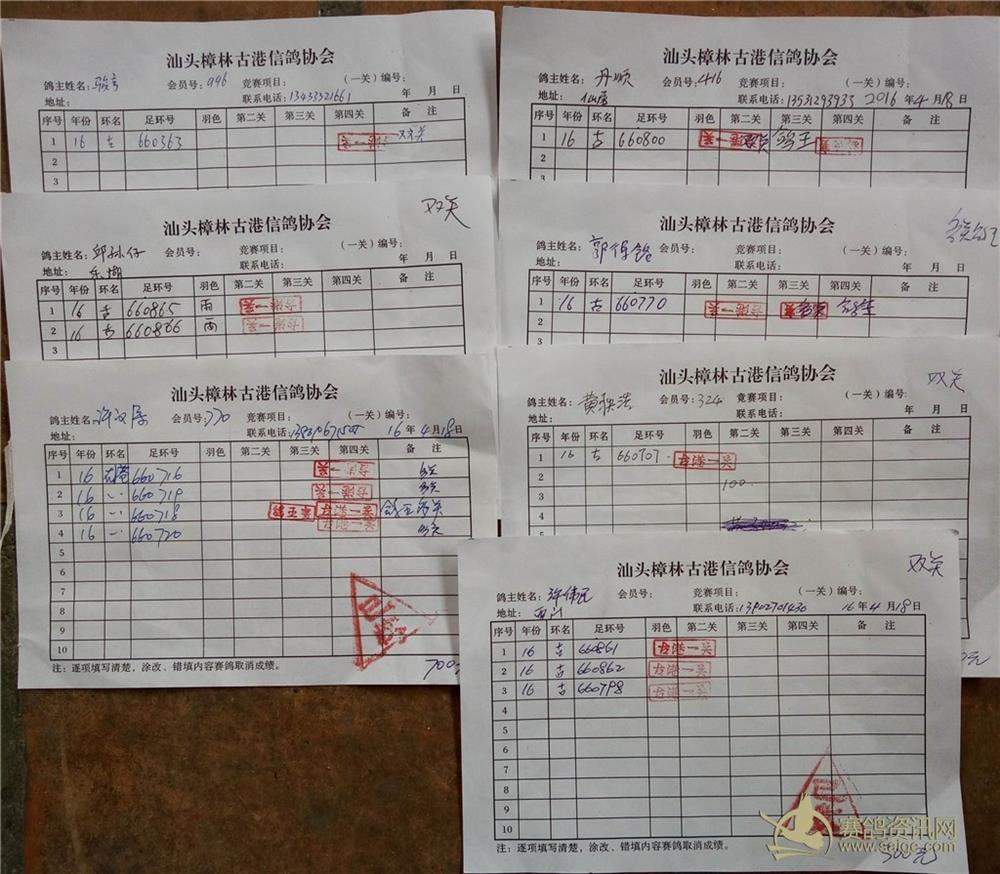 汕头樟林古港信鸽协会
鸽主姓名: 会员号:996 竞赛项目: (一关)编号:
地址: 联系电话:13433521661 年 月 日
序号 年份 环名 足环号 羽色 第二关 第三关 第四关 备 注
1 16 古 660363 双关
2
3
汕头樟林古港信鸽协会
鸽主姓名:丹顺 会员号:416 竞赛项目: (一关)编号:
地址:仙居 联系电话:13531293933 2016年4月18日
序号 年份 环名 足环号 羽色 第二关 第三关 第四关 备 注
1 16 古 660800 古港一关 双关 鸽王
2
3
汕头樟林古港信鸽协会 双关
鸽主姓名:邱 会员号: 竞赛项目: (一关)编号:
地址: 联系电话: 年 月 日
序号 年份 环名 足环号 羽色 第二关 第三关 第四关 备 注
1 16 古 660865 雨 古港一关
2 16 古 660866 雨 古港一关
3
汕头樟林古港信鸽协会
鸽主姓名:郭 会员号: 竞赛项目: (一关)编号:
地址: 联系电话: 年 月 日
序号 年份 环名 足环号 羽色 第二关 第三关 第四关 备 注
1 16 古 660770 古港一关
2
3
汕头樟林古港信鸽协会
鸽主姓名:许汉 会员号:770 竞赛项目: (一关)编号:
地址: 联系电话: 16年4月18日
序号 年份 环名 足环号 羽色 第二关 第三关 第四关 备 注
1 16 古港 660716 古港一关
2 16 〃 660719 古港一关
3 16 〃 660718 古港一关 鸽王
4 16 〃 660720 古港一关
5
6
7
8
9
10
注:逐项填写清楚,涂改、错填内容赛鸽取消成绩。
700元
汕头樟林古港信鸽协会 双关
鸽主姓名:黄 会员号:324 竞赛项目: (一关)编号:
地址: 联系电话: 年 月 日
序号 年份 环名 足环号 羽色 第二关 第三关 第四关 备 注
1 16 古 660707 古港一关
2 100
3
4
汕头樟林古港信鸽协会 双关
鸽主姓名:许伟民 会员号: 竞赛项目: (一关)编号:
地址:西门 联系电话:13902701430 16年4月18日
序号 年份 环名 足环号 羽色 第二关 第三关 第四关 备 注
1 16 古 660861 古港一关
2 16 古 660862 古港一关
3 16 古 660798 古港一关
4
5
6
7
8
9
10
注:逐项填写清楚,涂改、错填内容赛鸽取消成绩。
300元
赛鸽资讯网
www.saigc.com